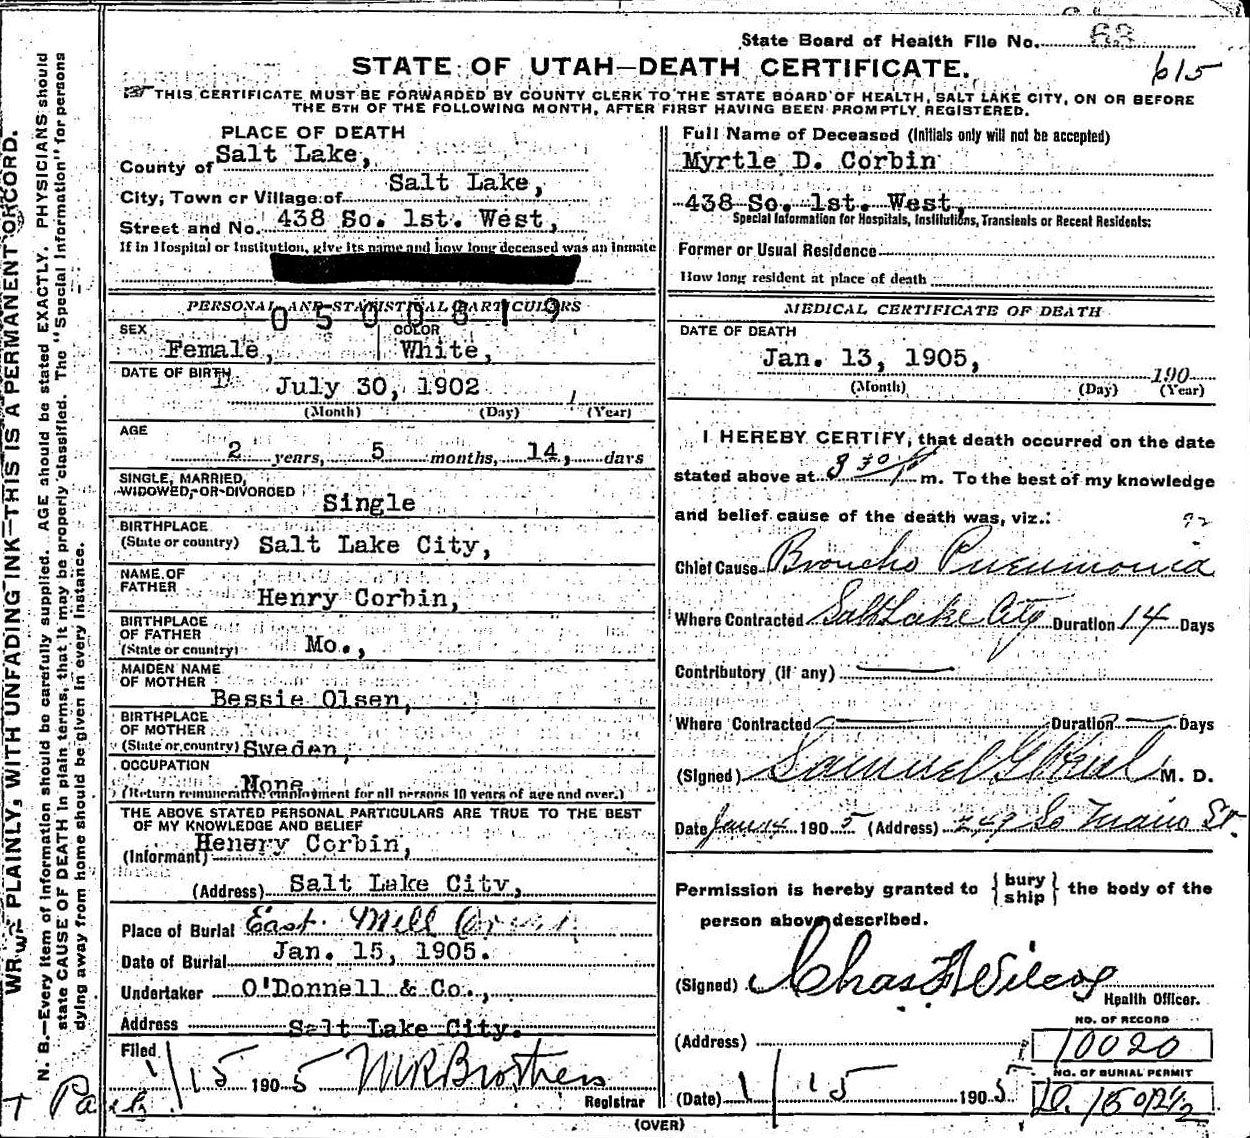 State Board of Health File No. 68
615
STATE OF UTAH—DEATH CERTIFICATE.
THIS CERTIFICATE MUST BE FORWARDED BY COUNTY CLERK TO THE STATE BOARD OF HEALTH, SALT LAKE CITY, ON OR BEFORE
THE 5TH OF THE FOLLOWING MONTH, AFTER FIRST HAVING BEEN PROMPTLY REGISTERED.
PLACE OF DEATH
County of Salt Lake,
City, Town or Village of Salt Lake,
Street and No. 438 So. 1st. West,
If in Hospital or Institution, give its name and how long deceased was an inmate
PERSONAL AND STATISTICAL PARTICULARS
0500819
SEX Female, COLOR White,
DATE OF BIRTH July 30, 1902
(Month) (Day) (Year)
AGE
2 years, 5 months, 14, days
SINGLE, MARRIED,
WIDOWED, OR DIVORCED Single
BIRTHPLACE
(State or country) Salt Lake City,
NAME OF
FATHER Henry Corbin,
BIRTHPLACE
OF FATHER
(State or country) Mo.,
MAIDEN NAME
OF MOTHER Bessie Olsen,
BIRTHPLACE
OF MOTHER
(State or country) Sweden,
OCCUPATION None
(Return remunerative employment for all persons 10 years of age and over.)
THE ABOVE STATED PERSONAL PARTICULARS ARE TRUE TO THE BEST
OF MY KNOWLEDGE AND BELIEF
(Informant) Henery Corbin,
(Address) Salt Lake City,
Place of Burial East Mill
Date of Burial Jan. 15, 1905.
Undertaker O'Donnell & Co.,
Address Salt Lake City.
Filed
1/15 1905 M R Brothers
Registrar
Full Name of Deceased (Initials only will not be accepted)
Myrtle D. Corbin
438 So. 1st. West,
Special Information for Hospitals, Institutions, Transients or Recent Residents:
Former or Usual Residence
How long resident at place of death
MEDICAL CERTIFICATE OF DEATH
DATE OF DEATH
Jan. 13, 1905, 190
(Month) (Day) (Year)
I HEREBY CERTIFY, that death occurred on the date
stated above at 3 30 p m. To the best of my knowledge
and belief cause of the death was, viz.: 92
Chief Cause Broncho Pneumonia
Where Contracted Salt Lake City Duration 14 Days
Contributory (if any)
Where Contracted Duration Days
(Signed) Samuel G M. D.
Date Jan 14 1905 (Address) 249 So Main St.
Permission is hereby granted to {bury ship} the body of the
person above described.
(Signed) Chas F Wilcox
Health Officer.
(Address)
NO. OF RECORD
10020
NO. OF BURIAL PERMIT
(Date) 1/15 1905
(OVER)
WRITE PLAINLY, WITH UNFADING INK—THIS IS A PERMANENT RECORD.
N. B.—Every item of information should be carefully supplied. AGE should be stated EXACTLY. PHYSICIANS should
state CAUSE OF DEATH in plain terms, that it may be properly classified. The "Special Information" for persons
dying away from home should be given in every instance.